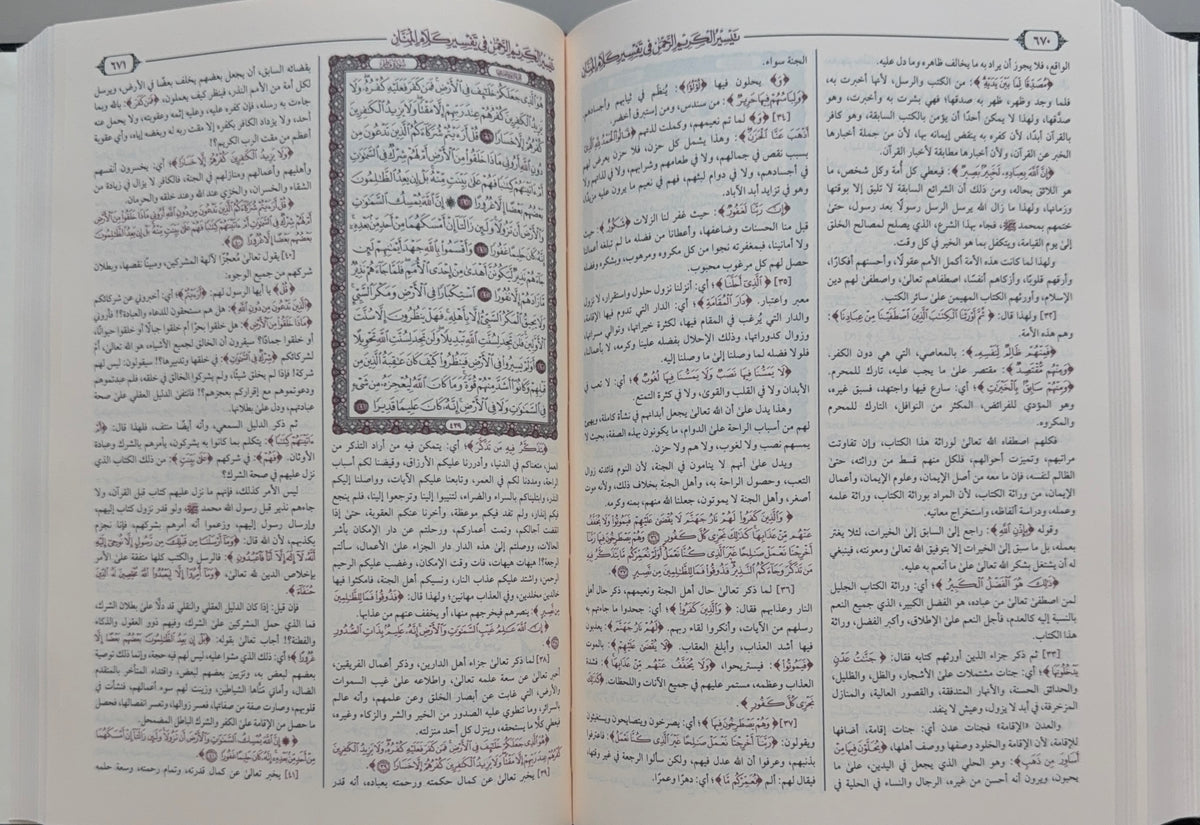 ٦٧٠
تيسير الكريم الرحمن في تفسير كلام المنان
الواقع، فلا يجوز أن يراد به ما يخالف ظاهره وما دل عليه.
﴿مُصَدِّقًا لِمَا بَيْنَ يَدَيْهِ﴾: من الكتب والرسل، لأنها أخبرت به،
فلما وجد وظهر، ظهر به صدقها؛ فهي بشرت به وأخبرت، وهو
صدَّقها، ولهذا لا يمكن أحدًا أن يؤمن بالكتب السابقة، وهو كافر
بالقرآن أبدًا، لأن كفره به ينقض إيمانه بها، لأن من جملة أخبارها
الخبر عن القرآن، ولأن أخبارها مطابقة لأخبار القرآن.
﴿إِنَّ اللَّهَ بِعِبَادِهِ لَخَبِيرٌ بَصِيرٌ﴾: فيعطي كل أمة وكل شخص، ما
هو اللائق بحاله، ومن ذلك أن الشرائع السابقة لا تليق إلا بوقتها
وزمانها، ولهذا ما زال الله يرسل الرسل رسولًا بعد رسول، حتىٰ
ختمهم بمحمد ﷺ، فجاء بهذا الشرع، الذي يصلح لمصالح الخلق
إلىٰ يوم القيامة، ويتكفل بما هو الخير في كل وقت.
ولهذا لما كانت هذه الأمة أكمل الأمم عقولًا، وأحسنهم أفكارًا،
وأرقهم قلوبًا، وأزكاهم أنفسًا، اصطفاهم تعالىٰ، واصطفىٰ لهم دين
الإسلام، وأورثهم الكتاب المهيمن علىٰ سائر الكتب.
[٣٢] ولهذا قال: ﴿ثُمَّ أَوْرَثْنَا الْكِتَابَ الَّذِينَ اصْطَفَيْنَا مِنْ عِبَادِنَا﴾:
وهم هذه الأمة.
﴿فَمِنْهُمْ ظَالِمٌ لِنَفْسِهِ﴾: بالمعاصي، التي هي دون الكفر.
﴿وَمِنْهُمْ مُقْتَصِدٌ﴾: مقتصر علىٰ ما يجب عليه، تارك للمحرم.
﴿وَمِنْهُمْ سَابِقٌ بِالْخَيْرَاتِ﴾؛ أي: سارع فيها واجتهد، فسبق غيره،
وهو المؤدي للفرائض، المكثر من النوافل، التارك للمحرم
والمكروه.
فكلهم اصطفاه الله تعالىٰ لوراثة هذا الكتاب، وإن تفاوتت
مراتبهم، وتميزت أحوالهم، فلكل منهم قسط من وراثته، حتىٰ
الظالم لنفسه، فإن ما معه من أصل الإيمان، وعلوم الإيمان، وأعمال
الإيمان، من وراثة الكتاب، لأن المراد بوراثة الكتاب، وراثة علمه
وعمله، ودراسة ألفاظه، واستخراج معانيه.
وقوله ﴿بِإِذْنِ اللَّهِ﴾: راجع إلىٰ السابق إلىٰ الخيرات، لئلا يغتر
بعمله، بل ما سبق إلىٰ الخيرات إلا بتوفيق الله تعالىٰ ومعونته، فينبغي
له أن يشتغل بشكر الله تعالىٰ علىٰ ما أنعم به عليه.
﴿ذَلِكَ هُوَ الْفَضْلُ الْكَبِيرُ﴾؛ أي: وراثة الكتاب الجليل
لمن اصطفىٰ تعالىٰ من عباده، هو الفضل الكبير، الذي جميع النعم
بالنسبة إليه كالعدم، فأجل النعم علىٰ الإطلاق، وأكبر الفضل، وراثة
هذا الكتاب.
[٣٣] ثم ذكر جزاء الذين أورثهم كتابه فقال: ﴿جَنَّاتُ عَدْنٍ
يَدْخُلُونَهَا﴾؛ أي: جنات مشتملات علىٰ الأشجار، والظل، والظليل،
والحدائق الحسنة، والأنهار المتدفقة، والقصور العالية، والمنازل
المزخرفة، في أبد لا يزول، وعيش لا ينفد.
والعدن «الإقامة» فجنات عدن أي: جنات إقامة، أضافها
للإقامة، لأن الإقامة والخلود وصفها ووصف أهلها، ﴿يُحَلَّوْنَ فِيهَا مِنْ
أَسَاوِرَ مِنْ ذَهَبٍ﴾: وهو الحلي الذي يجعل في اليدين، علىٰ ما
يحبون، ويرون أنه أحسن من غيره، الرجال والنساء في الحلية في
الجنة سواء.
﴿وَ﴾ يحلون فيها ﴿لُؤْلُؤًا﴾: يُنظم في ثيابهم وأجسادهم،
﴿وَلِبَاسُهُمْ فِيهَا حَرِيرٌ﴾: من سندس، ومن إستبرق أخضر.
[٣٤] ﴿وَ﴾ لما تم نعيمهم، وكملت لذتهم ﴿قَالُوا الْحَمْدُ لِلَّهِ الَّذِي
أَذْهَبَ عَنَّا الْحَزَنَ﴾: وهذا يشمل كل حزن، فلا حزن يعرض لهم
بسبب نقص في جمالهم، ولا في طعامهم وشرابهم، ولا في لذاتهم ولا
في أجسادهم، ولا في دوام لبثهم، فهم في نعيم ما يرون عليه مزيدًا،
وهو في تزايد أبد الآباد.
﴿إِنَّ رَبَّنَا لَغَفُورٌ﴾: حيث غفر لنا الزلات ﴿شَكُورٌ﴾: حيث
قبل منا الحسنات وضاعفها، وأعطانا من فضله ما لم تبلغه أعمالنا
ولا أمانينا، فبمغفرته نجوا من كل مكروه ومرهوب، وبشكره وفضله
حصل لهم كل مرغوب محبوب.
[٣٥] ﴿الَّذِي أَحَلَّنَا﴾؛ أي: أنزلنا نزول حلول واستقرار، لا نزول
معبر واعتبار. ﴿دَارَ الْمُقَامَةِ﴾؛ أي: الدار التي تدوم فيها الإقامة،
والدار التي يُرغب في المقام فيها، لكثرة خيراتها، وتوالي مسراتها،
وزوال كدوراتها، وذلك الإحلال بفضله علينا وكرمه، لا بأعمالنا،
فلولا فضله لما وصلنا إلىٰ ما وصلنا إليه.
﴿لَا يَمَسُّنَا فِيهَا نَصَبٌ وَلَا يَمَسُّنَا فِيهَا لُغُوبٌ﴾؛ أي: لا تعب في
الأبدان ولا في القلب والقوىٰ، ولا في كثرة التمتع.
وهذا يدل علىٰ أن الله تعالىٰ يجعل أبدانهم في نشأة كاملة، ويهيئ
لهم من أسباب الراحة علىٰ الدوام، ما يكونون بهذه الصفة، بحيث لا
يمسهم نصب ولا لغوب، ولا هم ولا حزن.
ويدل علىٰ أنهم لا ينامون في الجنة، لأن النوم فائدته زوال
التعب، وحصول الراحة به، وأهل الجنة بخلاف ذلك، ولأنه موت
أصغر، وأهل الجنة لا يموتون، جعلنا الله منهم، بمنه وكرمه.
﴿وَالَّذِينَ كَفَرُوا لَهُمْ نَارُ جَهَنَّمَ لَا يُقْضَى عَلَيْهِمْ فَيَمُوتُوا وَلَا يُخَفَّفُ
عَنْهُمْ مِنْ عَذَابِهَا كَذَلِكَ نَجْزِي كُلَّ كَفُورٍ ۝ وَهُمْ يَصْطَرِخُونَ فِيهَا رَبَّنَا
أَخْرِجْنَا نَعْمَلْ صَالِحًا غَيْرَ الَّذِي كُنَّا نَعْمَلُ أَوَلَمْ نُعَمِّرْكُمْ مَا يَتَذَكَّرُ فِيهِ
مَنْ تَذَكَّرَ وَجَاءَكُمُ النَّذِيرُ فَذُوقُوا فَمَا لِلظَّالِمِينَ مِنْ نَصِيرٍ ۝﴾
[٣٦] لما ذكر تعالىٰ حال أهل الجنة ونعيمهم، ذكر حال أهل
النار وعذابهم فقال: ﴿وَالَّذِينَ كَفَرُوا﴾؛ أي: جحدوا ما جاءتهم به
رسلهم من الآيات، وأنكروا لقاء ربهم. ﴿لَهُمْ نَارُ جَهَنَّمَ﴾: يعذبون
فيها أشد العذاب، وأبلغ العقاب. ﴿لَا يُقْضَى عَلَيْهِمْ﴾: بالموت
﴿فَيَمُوتُوا﴾: فيستريحوا، ﴿وَلَا يُخَفَّفُ عَنْهُمْ مِنْ عَذَابِهَا﴾: فشدة
العذاب وعظمه، مستمر عليهم في جميع الآنات واللحظات. ﴿كَذَلِكَ
نَجْزِي كُلَّ كَفُورٍ﴾.
[٣٧] ﴿وَهُمْ يَصْطَرِخُونَ فِيهَا﴾؛ أي: يصرخون ويتصايحون ويستغيثون
ويقولون: ﴿رَبَّنَا أَخْرِجْنَا نَعْمَلْ صَالِحًا غَيْرَ الَّذِي كُنَّا نَعْمَلُ﴾: فاعترفوا
بذنبهم، وعرفوا أن الله عدل فيهم، ولكن سألوا الرجعة في غير وقتها،
فيقال لهم: ألم ﴿نُعَمِّرْكُمْ مَا﴾؛ أي: دهرًا وعمرًا.
تيسير الكريم الرحمن في تفسير كلام المنان
٦٧١
هُوَ الَّذِي جَعَلَكُمْ خَلَائِفَ فِي الْأَرْضِ فَمَنْ كَفَرَ فَعَلَيْهِ كُفْرُهُ وَلَا
يَزِيدُ الْكَافِرِينَ كُفْرُهُمْ عِنْدَ رَبِّهِمْ إِلَّا مَقْتًا وَلَا يَزِيدُ الْكَافِرِينَ
كُفْرُهُمْ إِلَّا خَسَارًا ۝٣٩ قُلْ أَرَأَيْتُمْ شُرَكَاءَكُمُ الَّذِينَ تَدْعُونَ مِنْ
دُونِ اللَّهِ أَرُونِي مَاذَا خَلَقُوا مِنَ الْأَرْضِ أَمْ لَهُمْ شِرْكٌ فِي السَّمَاوَاتِ
أَمْ آتَيْنَاهُمْ كِتَابًا فَهُمْ عَلَى بَيِّنَتٍ مِنْهُ بَلْ إِنْ يَعِدُ الظَّالِمُونَ
بَعْضُهُمْ بَعْضًا إِلَّا غُرُورًا ۝٤٠ ۞ إِنَّ اللَّهَ يُمْسِكُ السَّمَاوَاتِ
وَالْأَرْضَ أَنْ تَزُولَا وَلَئِنْ زَالَتَا إِنْ أَمْسَكَهُمَا مِنْ أَحَدٍ مِنْ بَعْدِهِ
إِنَّهُ كَانَ حَلِيمًا غَفُورًا ۝٤١ وَأَقْسَمُوا بِاللَّهِ جَهْدَ أَيْمَانِهِمْ لَئِنْ
جَاءَهُمْ نَذِيرٌ لَيَكُونُنَّ أَهْدَى مِنْ إِحْدَى الْأُمَمِ فَلَمَّا جَاءَهُمْ نَذِيرٌ
مَا زَادَهُمْ إِلَّا نُفُورًا ۝٤٢ اسْتِكْبَارًا فِي الْأَرْضِ وَمَكْرَ السَّيِّئِ
وَلَا يَحِيقُ الْمَكْرُ السَّيِّئُ إِلَّا بِأَهْلِهِ فَهَلْ يَنْظُرُونَ إِلَّا سُنَّتَ
الْأَوَّلِينَ فَلَنْ تَجِدَ لِسُنَّتِ اللَّهِ تَبْدِيلًا وَلَنْ تَجِدَ لِسُنَّتِ اللَّهِ تَحْوِيلًا
۝٤٣ أَوَلَمْ يَسِيرُوا فِي الْأَرْضِ فَيَنْظُرُوا كَيْفَ كَانَ عَاقِبَةُ الَّذِينَ مِنْ
قَبْلِهِمْ وَكَانُوا أَشَدَّ مِنْهُمْ قُوَّةً وَمَا كَانَ اللَّهُ لِيُعْجِزَهُ مِنْ شَيْءٍ
فِي السَّمَاوَاتِ وَلَا فِي الْأَرْضِ إِنَّهُ كَانَ عَلِيمًا قَدِيرًا ۝٤٤
٤٣٩
﴿يَتَذَكَّرُ فِيهِ مَنْ تَذَكَّرَ﴾؛ أي: يتمكن فيه من أراد التذكر من
العمل، متعناكم في الدنيا، وأدررنا عليكم الأرزاق، وقيضنا لكم أسباب
الراحة، ومددنا لكم في العمر، وتابعنا عليكم الآيات، وواصلنا إليكم
النذر، وابتليناكم بالسراء والضراء، لتنيبوا إلينا وترجعوا إلينا، فلم ينجع
فيكم إنذار، ولم تفد فيكم موعظة، وأخرنا عنكم العقوبة، حتىٰ إذا
انقضت آجالكم، وتمت أعماركم، ورحلتم عن دار الإمكان بأشر
الحالات، ووصلتم إلىٰ هذه الدار دار الجزاء علىٰ الأعمال، سألتم
الرجعة؟! هيهات هيهات، فات وقت الإمكان، وغضب عليكم الرحيم
الرحمن، واشتد عليكم عذاب النار، ونسيكم أهل الجنة، فامكثوا فيها
خالدين مخلدين، وفي العذاب مهانين؛ ولهذا قال: ﴿فَذُوقُوا فَمَا لِلظَّالِمِينَ
مِنْ نَصِيرٍ﴾: ينصرهم فيخرجهم منها، أو يخفف عنهم من عذابها.
﴿إِنَّ اللَّهَ عَالِمُ غَيْبِ السَّمَاوَاتِ وَالْأَرْضِ إِنَّهُ عَلِيمٌ بِذَاتِ الصُّدُورِ
۝﴾
[٣٨] لما ذكر تعالىٰ جزاء أهل الدارين، وذكر أعمال الفريقين،
أخبر تعالىٰ عن سعة علمه تعالىٰ، واطلاعه علىٰ غيب السموات
والأرض، التي غابت عن أبصار الخلق وعن علمهم، وأنه عالم
بالسرائر، وما تنطوي عليه الصدور من الخير والشر والزكاء وغيره،
فيعطي كلًّا ما يستحقه، وينزل كل أحد منزلته.
﴿هُوَ الَّذِي جَعَلَكُمْ خَلَائِفَ فِي الْأَرْضِ فَمَنْ كَفَرَ فَعَلَيْهِ كُفْرُهُ وَلَا يَزِيدُ الْكَافِرِينَ
كُفْرُهُمْ عِنْدَ رَبِّهِمْ إِلَّا مَقْتًا وَلَا يَزِيدُ الْكَافِرِينَ كُفْرُهُمْ إِلَّا خَسَارًا ۝﴾
[٣٩] يخبر تعالىٰ عن كمال حكمته ورحمته بعباده، أنه قدر
بقضائه السابق، أن يجعل بعضهم يخلف بعضًا في الأرض، ويرسل
لكل أمة من الأمم النذر، فينظر كيف يعملون، ﴿فَمَنْ كَفَرَ﴾: بالله وبما
جاءت به رسله، فإن كفره عليه، وعليه إثمه وعقوبته، ولا يحمل عنه
أحد، ولا يزداد الكافر بكفره إلا مقت ربه له وبغضه إياه، وأي عقوبة
أعظم من مقت الرب الكريم؟!
﴿وَلَا يَزِيدُ الْكَافِرِينَ كُفْرُهُمْ إِلَّا خَسَارًا﴾؛ أي: يخسرون أنفسهم
وأهليهم وأعمالهم ومنازلهم في الجنة، فالكافر لا يزال في زيادة من
الشقاء والخسران، والخزي عند الله وعند خلقه والحرمان.
﴿قُلْ أَرَأَيْتُمْ شُرَكَاءَكُمُ الَّذِينَ تَدْعُونَ مِنْ دُونِ اللَّهِ أَرُونِي مَاذَا خَلَقُوا مِنَ الْأَرْضِ
أَمْ لَهُمْ شِرْكٌ فِي السَّمَاوَاتِ أَمْ آتَيْنَاهُمْ كِتَابًا فَهُمْ عَلَى بَيِّنَتٍ مِنْهُ بَلْ إِنْ يَعِدُ الظَّالِمُونَ
بَعْضُهُمْ بَعْضًا إِلَّا غُرُورًا ۝﴾
[٤٠] يقول تعالىٰ مُعجِّزًا لآلهة المشركين، ومبينًا نقصها، وبطلان
شركهم من جميع الوجوه:
﴿قُلْ﴾ يا أيها الرسول لهم: ﴿أَرَأَيْتُمْ﴾؛ أي: أخبروني عن شركائكم
﴿الَّذِينَ تَدْعُونَ مِنْ دُونِ اللَّهِ﴾: هل هم مستحقون للدعاء والعبادة؟! فأروني
﴿مَاذَا خَلَقُوا مِنَ الْأَرْضِ﴾: هل خلقوا بحرًا أم خلقوا جبالًا أو خلقوا حيوانًا،
أو خلقوا جمادًا؟ سيقرون أن الخالق لجميع الأشياء، هو الله تعالىٰ، أَمْ
لشركائكم ﴿شِرْكٌ فِي السَّمَاوَاتِ﴾: في خلقها وتدبيرها؟! سيقولون: ليس لهم
شركة! فإذا لم يخلقوا شيئًا، ولم يشركوا الخالق في خلقه، فلم عبدتموهم
ودعوتموهم مع إقراركم بعجزهم؟! فانتفىٰ الدليل العقلي علىٰ صحة
عبادتهم، ودل علىٰ بطلانها.
ثم ذكر الدليل السمعي، وأنه أيضًا منتف، فلهذا قال: ﴿أَمْ
آتَيْنَاهُمْ كِتَابًا﴾: يتكلم بما كانوا به يشركون، يأمرهم بالشرك وعبادة
الأوثان. ﴿فَهُمْ﴾: في شركهم ﴿عَلَى بَيِّنَتٍ﴾: من ذلك الكتاب الذي
نزل عليهم في صحة الشرك؟
ليس الأمر كذلك، فإنهم ما نزل عليهم كتاب قبل القرآن، ولا
جاءهم نذير قبل رسول الله محمد ﷺ، ولو قدر نزول كتاب إليهم،
وإرسال رسول إليهم، وزعموا أنه أمرهم بشركهم، فإنا نجزم
بكذبهم، لأن الله قال: ﴿وَمَا أَرْسَلْنَا مِنْ قَبْلِكَ مِنْ رَسُولٍ إِلَّا نُوحِي إِلَيْهِ
أَنَّهُ لَا إِلَهَ إِلَّا أَنَا فَاعْبُدُونِ﴾: فالرسل والكتب كلها متفقة علىٰ الأمر
بإخلاص الدين لله تعالىٰ، ﴿وَمَا أُمِرُوا إِلَّا لِيَعْبُدُوا اللَّهَ مُخْلِصِينَ لَهُ الدِّينَ
حُنَفَاءَ﴾.
فإن قيل: إذا كان الدليل العقلي والنقلي قد دلَّا علىٰ بطلان الشرك،
فما الذي حمل المشركين علىٰ الشرك، وفيهم ذوو العقول والذكاء
والفطنة؟! أجاب تعالىٰ بقوله: ﴿بَلْ إِنْ يَعِدُ الظَّالِمُونَ بَعْضُهُمْ بَعْضًا إِلَّا
غُرُورًا﴾؛ أي: ذلك الذي مشوا عليه، ليس لهم فيه حجة، وإنما ذلك توصية
بعضهم لبعض به، وتزيين بعضهم لبعض، واقتداء المتأخر بالمتقدم
الضال، وأماني مَنَّاها الشياطين، وزينت لهم سوء أعمالهم، فنشأت في
قلوبهم، وصارت صفة من صفاتها، فعسر زوالها، وتعسر انفصالها، فحصل
ما حصل من الإقامة علىٰ الكفر والشرك الباطل المضمحل.
﴿۞ إِنَّ اللَّهَ يُمْسِكُ السَّمَاوَاتِ وَالْأَرْضَ أَنْ تَزُولَا وَلَئِنْ زَالَتَا إِنْ أَمْسَكَهُمَا
مِنْ أَحَدٍ مِنْ بَعْدِهِ إِنَّهُ كَانَ حَلِيمًا غَفُورًا ۝﴾
[٤١] يخبر تعالىٰ عن كمال قدرته، وتمام رحمته، وسعة حلمه